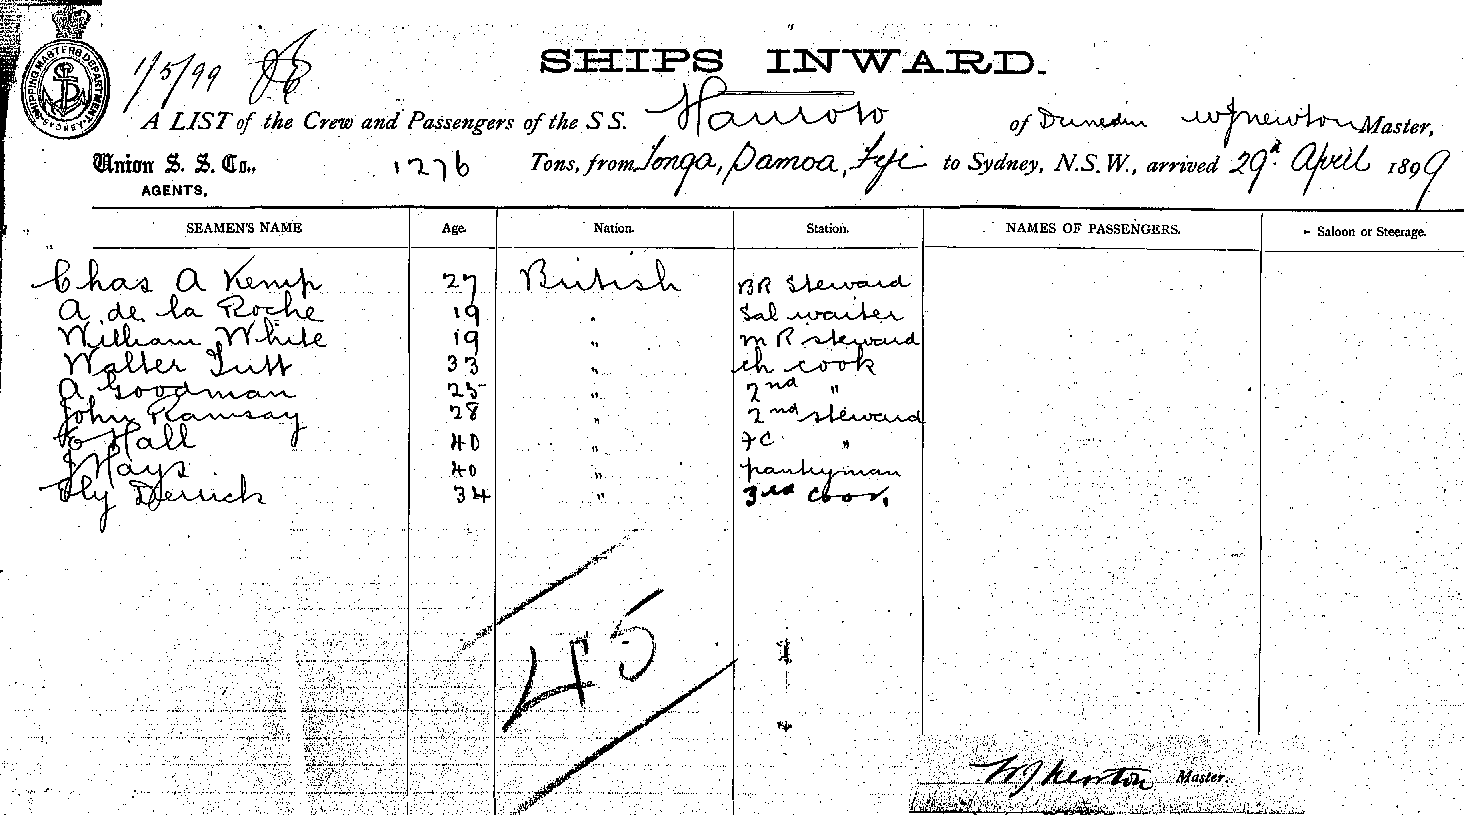 SHIPPING MASTERS DEPARTMENT
1/5/99
SHIPS INWARD.
A LIST of the Crew and Passengers of the SS. Hauroto of Dunedin W J Newton Master,
Union S. S. Co., 1276 Tons, from Tonga, Samoa, Fiji to Sydney, N.S.W., arrived 29th April 1899
AGENTS,
SEAMEN'S NAME Age. Nation. Station. NAMES OF PASSENGERS. Saloon or Steerage.
Chas A Kemp 27 British BR Steward
A de la Roche 19 " Sal waiter
William White 19 " M R steward
Walter Tutt 33 " ch cook
A Goodman 25 " 2nd "
John Ramsay 28 " 2nd steward
C Hall 40 " FC "
J Hays 40 " pantryman
Ely Derrick 34 " 3rd cook
45
W J Newton Master.